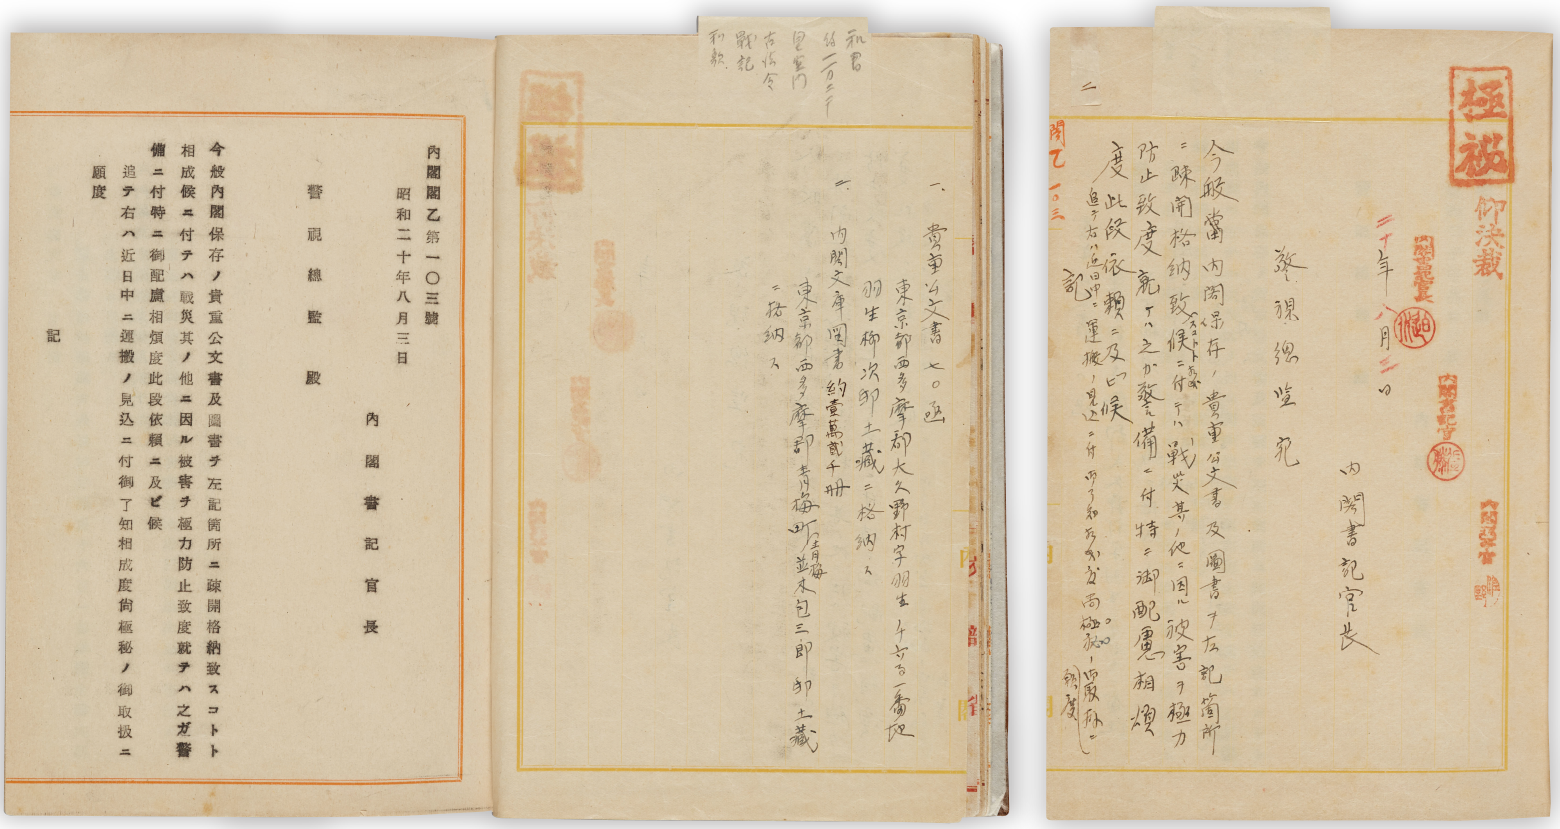 極秘
仰決裁
内閣書記官長
二十年八月三日
内閣書記官
内閣書記官長
警視総監宛
今般當内閣保存ノ貴重公文書及圖書ヲ左記箇所
ニ疎開格納致候ニ付テハ戦災其ノ他ニ因ル被害ヲ極力
スコトト相成
防止致度就テハ之ガ警備ニ付特ニ御配慮相煩
度此段依頼ニ及ビ候
追テ右ハ近日中ニ運搬ノ見込ニ付御了知相成度尚極秘ノ御取扱ニ
願度
記
閣乙一〇三
二
和書
約一万二千
皇室門
古法令
戦記
和歌
一、貴重公文書七〇函
東京都西多摩郡大久野村字羽生千六百一番地
羽生柳次郎土藏ニ格納ス
二、内閣文庫図書約壹萬貳千冊
東京都西多摩郡青梅町青梅並木包三郎土藏
ニ格納ス
内閣閣乙第一〇三號
昭和二十年八月三日
内閣書記官長
警視總監殿
今般内閣保存ノ貴重公文書及圖書ヲ左記箇所ニ疎開格納致スコトト
相成候ニ付テハ戰災其ノ他ニ因ル被害ヲ極力防止致度就テハ之ガ警
備ニ付特ニ御配慮相煩度此段依頼ニ及ビ候
追テ右ハ近日中ニ運搬ノ見込ニ付御了知相成度尚極秘ノ御取扱ニ
願度
記